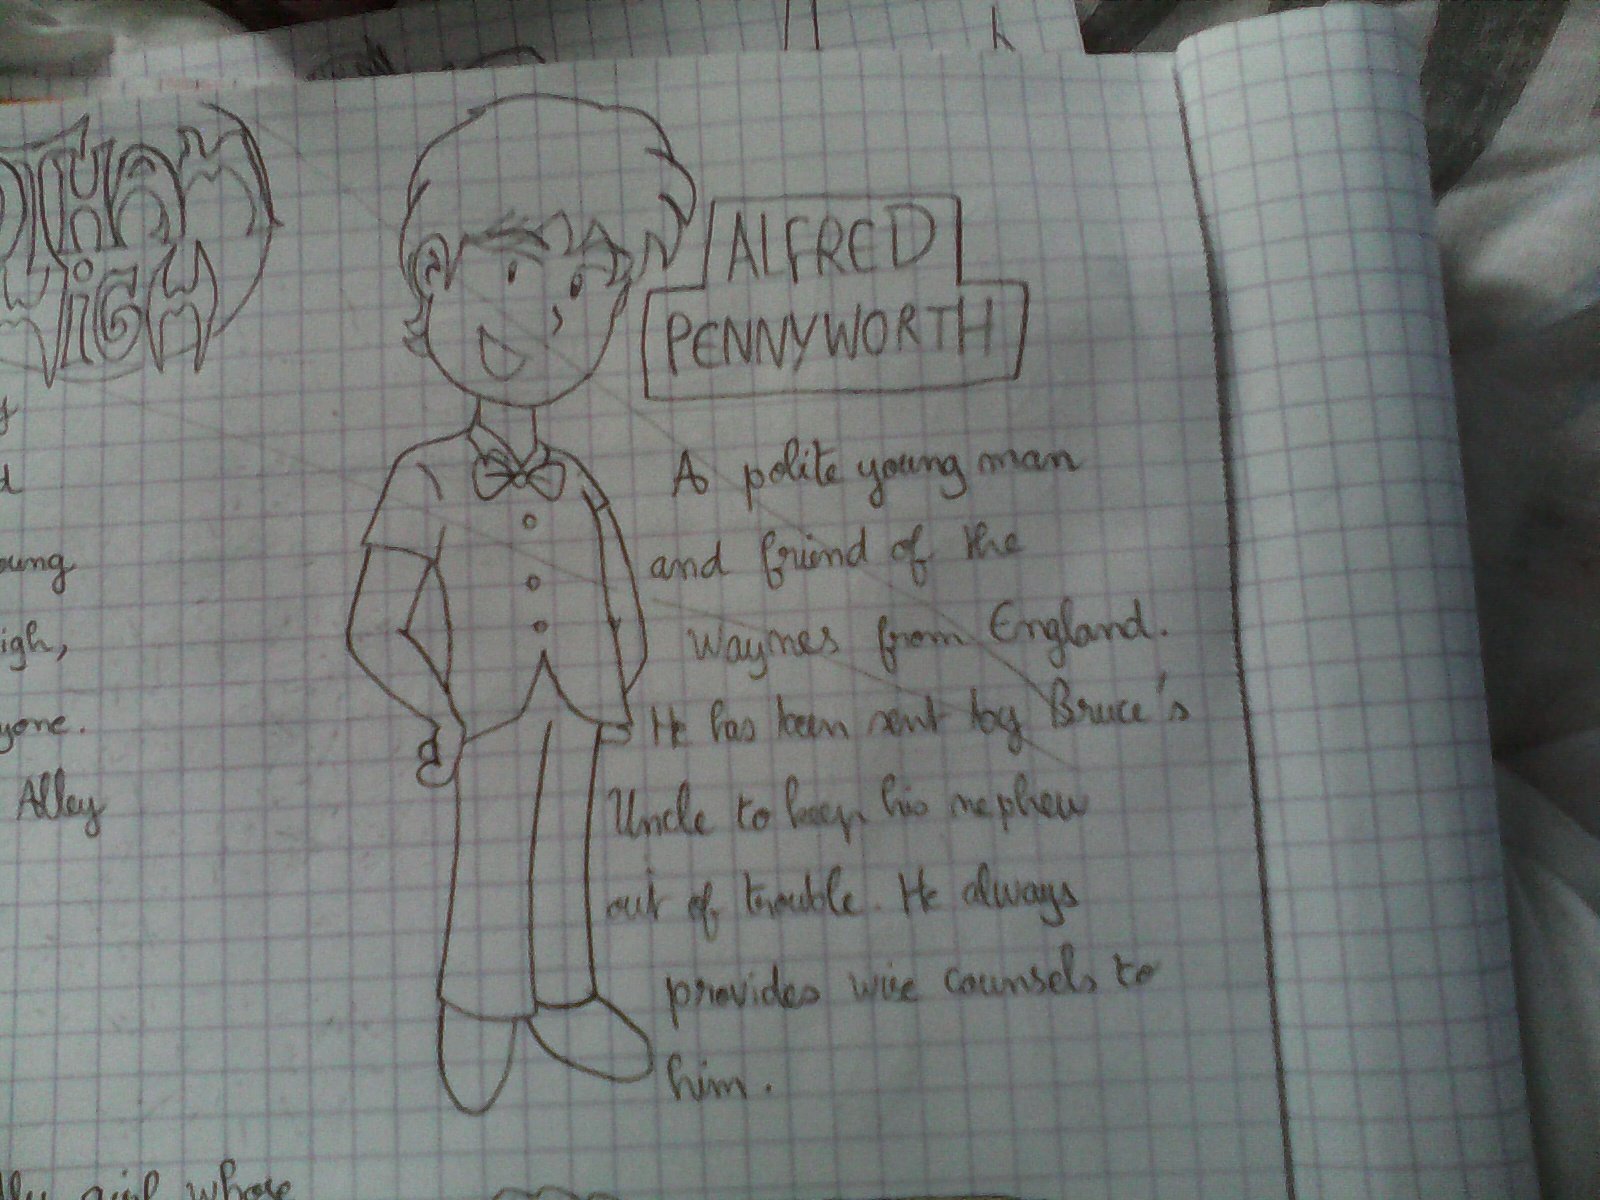 Gotham
High
oung
igh,
yone.
Alley
ALFRED
PENNYWORTH
A polite young man
and friend of the
Waynes from England.
He has been sent by Bruce's
Uncle to keep his nephew
out of trouble. He always
provides wise counsels to
him.
girl whose